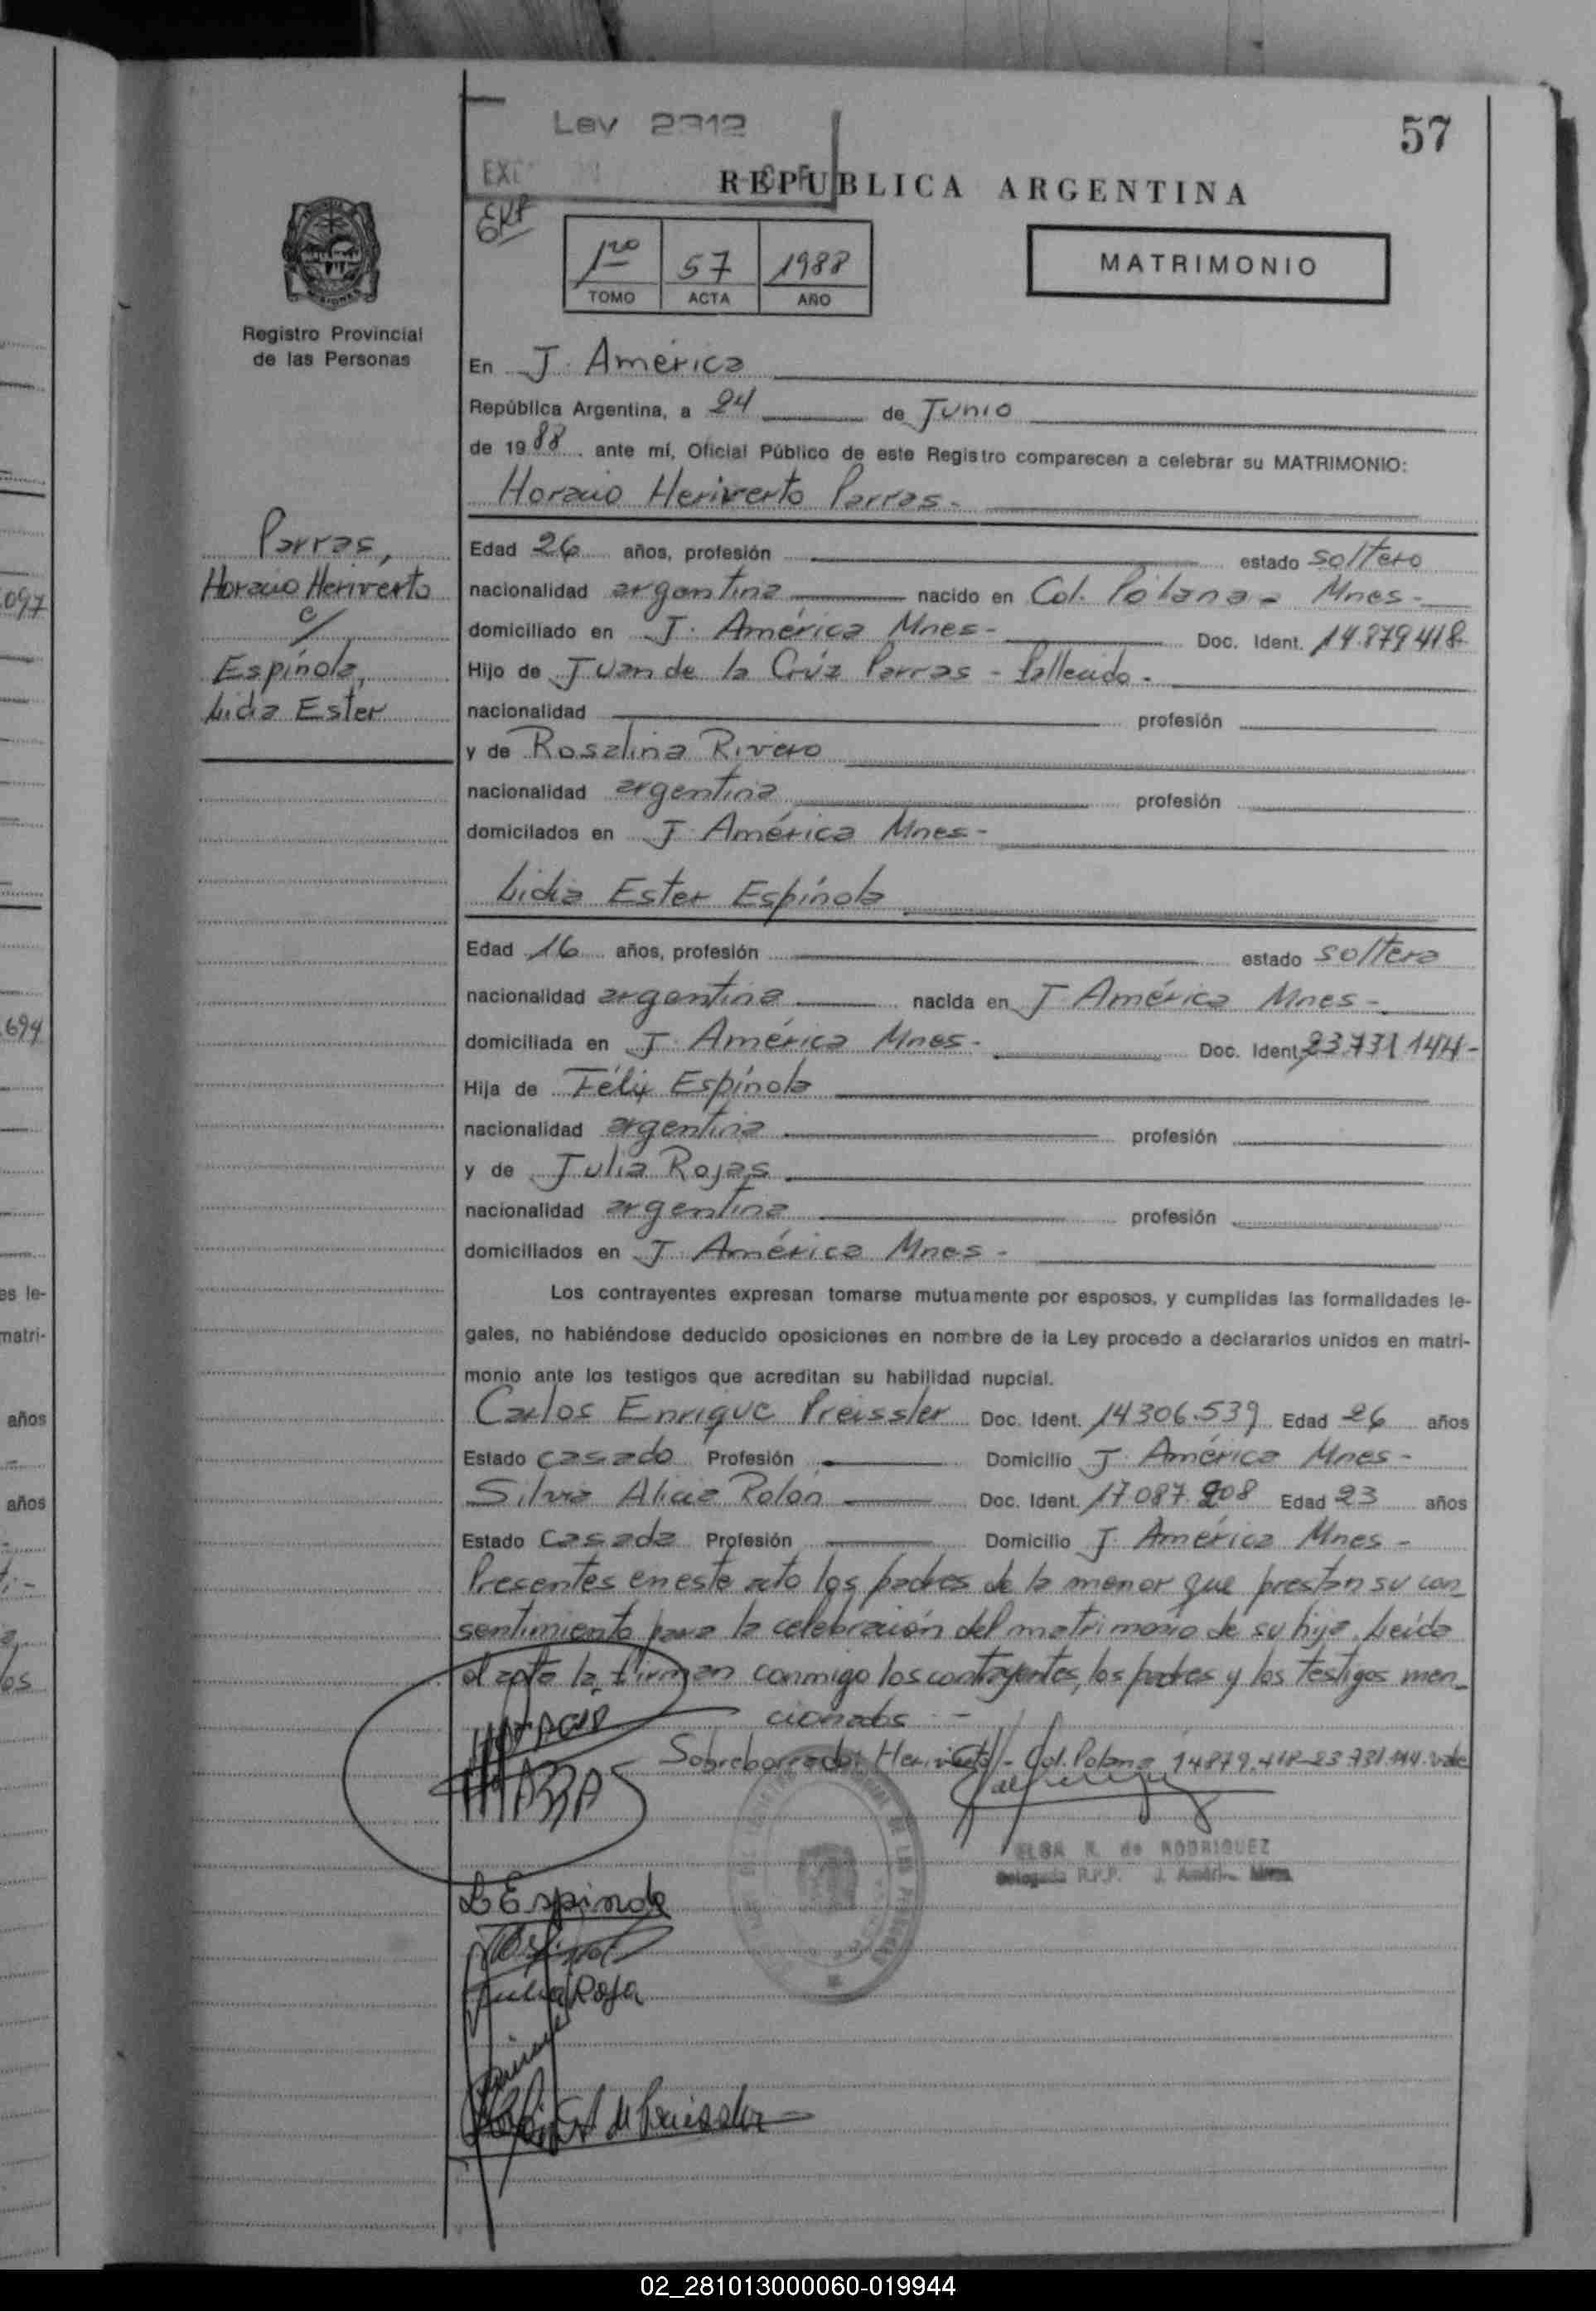 57
Ley 2312
REPUBLICA ARGENTINA
1ro 57 1988
TOMO ACTA AÑO
MATRIMONIO
Registro Provincial
de las Personas
En J. América
República Argentina, a 24 de Junio
de 1988. ante mí, Oficial Público de este Registro comparecen a celebrar su MATRIMONIO:
Horacio Heriverto Parras.-
Parras,
Horacio Heriverto
c/
Espínola,
Lidia Ester
Edad 26 años, profesión estado soltero
nacionalidad argentina nacido en Col. Polana - Mnes-
domiciliado en J. América Mnes- Doc. Ident. 14.879.418
Hijo de Juan de la Crúz Parras - fallecido.-
nacionalidad profesión
y de Rosalina Rivero
nacionalidad argentina profesión
domicilados en J. América Mnes-
Lidia Ester Espínola
Edad 16 años, profesión estado soltera
nacionalidad argentina nacida en J. América Mnes-
domiciliada en J. América Mnes- Doc. Ident. 23.731.144-
Hija de Félix Espínola
nacionalidad argentina profesión
y de Julia Rojas
nacionalidad argentina profesión
domiciliados en J. América Mnes-
Los contrayentes expresan tomarse mutuamente por esposos, y cumplidas las formalidades le-
gales, no habiéndose deducido oposiciones en nombre de la Ley procedo a declararlos unidos en matri-
monio ante los testigos que acreditan su habilidad nupcial.
Carlos Enrique Preissler Doc. Ident. 14.306.539 Edad 26 años
Estado casado Profesión Domicilio J. América Mnes-
Silvia Alicia Rolón Doc. Ident. 17.087.208 Edad 23 años
Estado casada Profesión Domicilio J. América Mnes-
Presentes en este acto los padres de la menor que prestan su con-
sentimiento para la celebración del matrimonio de su hija. Leída
el acta la firman conmigo los contrayentes, los padres y los testigos men-
cionados -
Sobreborrado: Heriverto - Col. Polana 14.879.418-23.731.144. vale
ELSA N. de RODRIGUEZ
Delegada R.P.P. J. Améri. Mnes.
L Espinola
Julia Roja
de Preissler
097
694
es le-
matri-
años
años
02_281013000060-019944